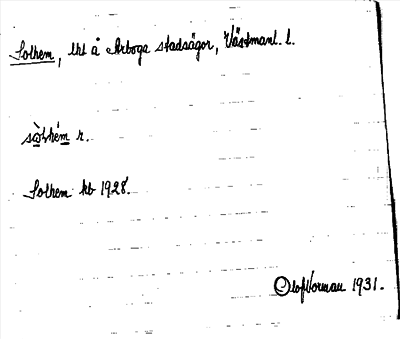 Solhem, lht å Arboga stadsägor, Västmanl. l.
sò̲lhém̲ n.
Solhem kb 1928.
Olof Norman 1931.